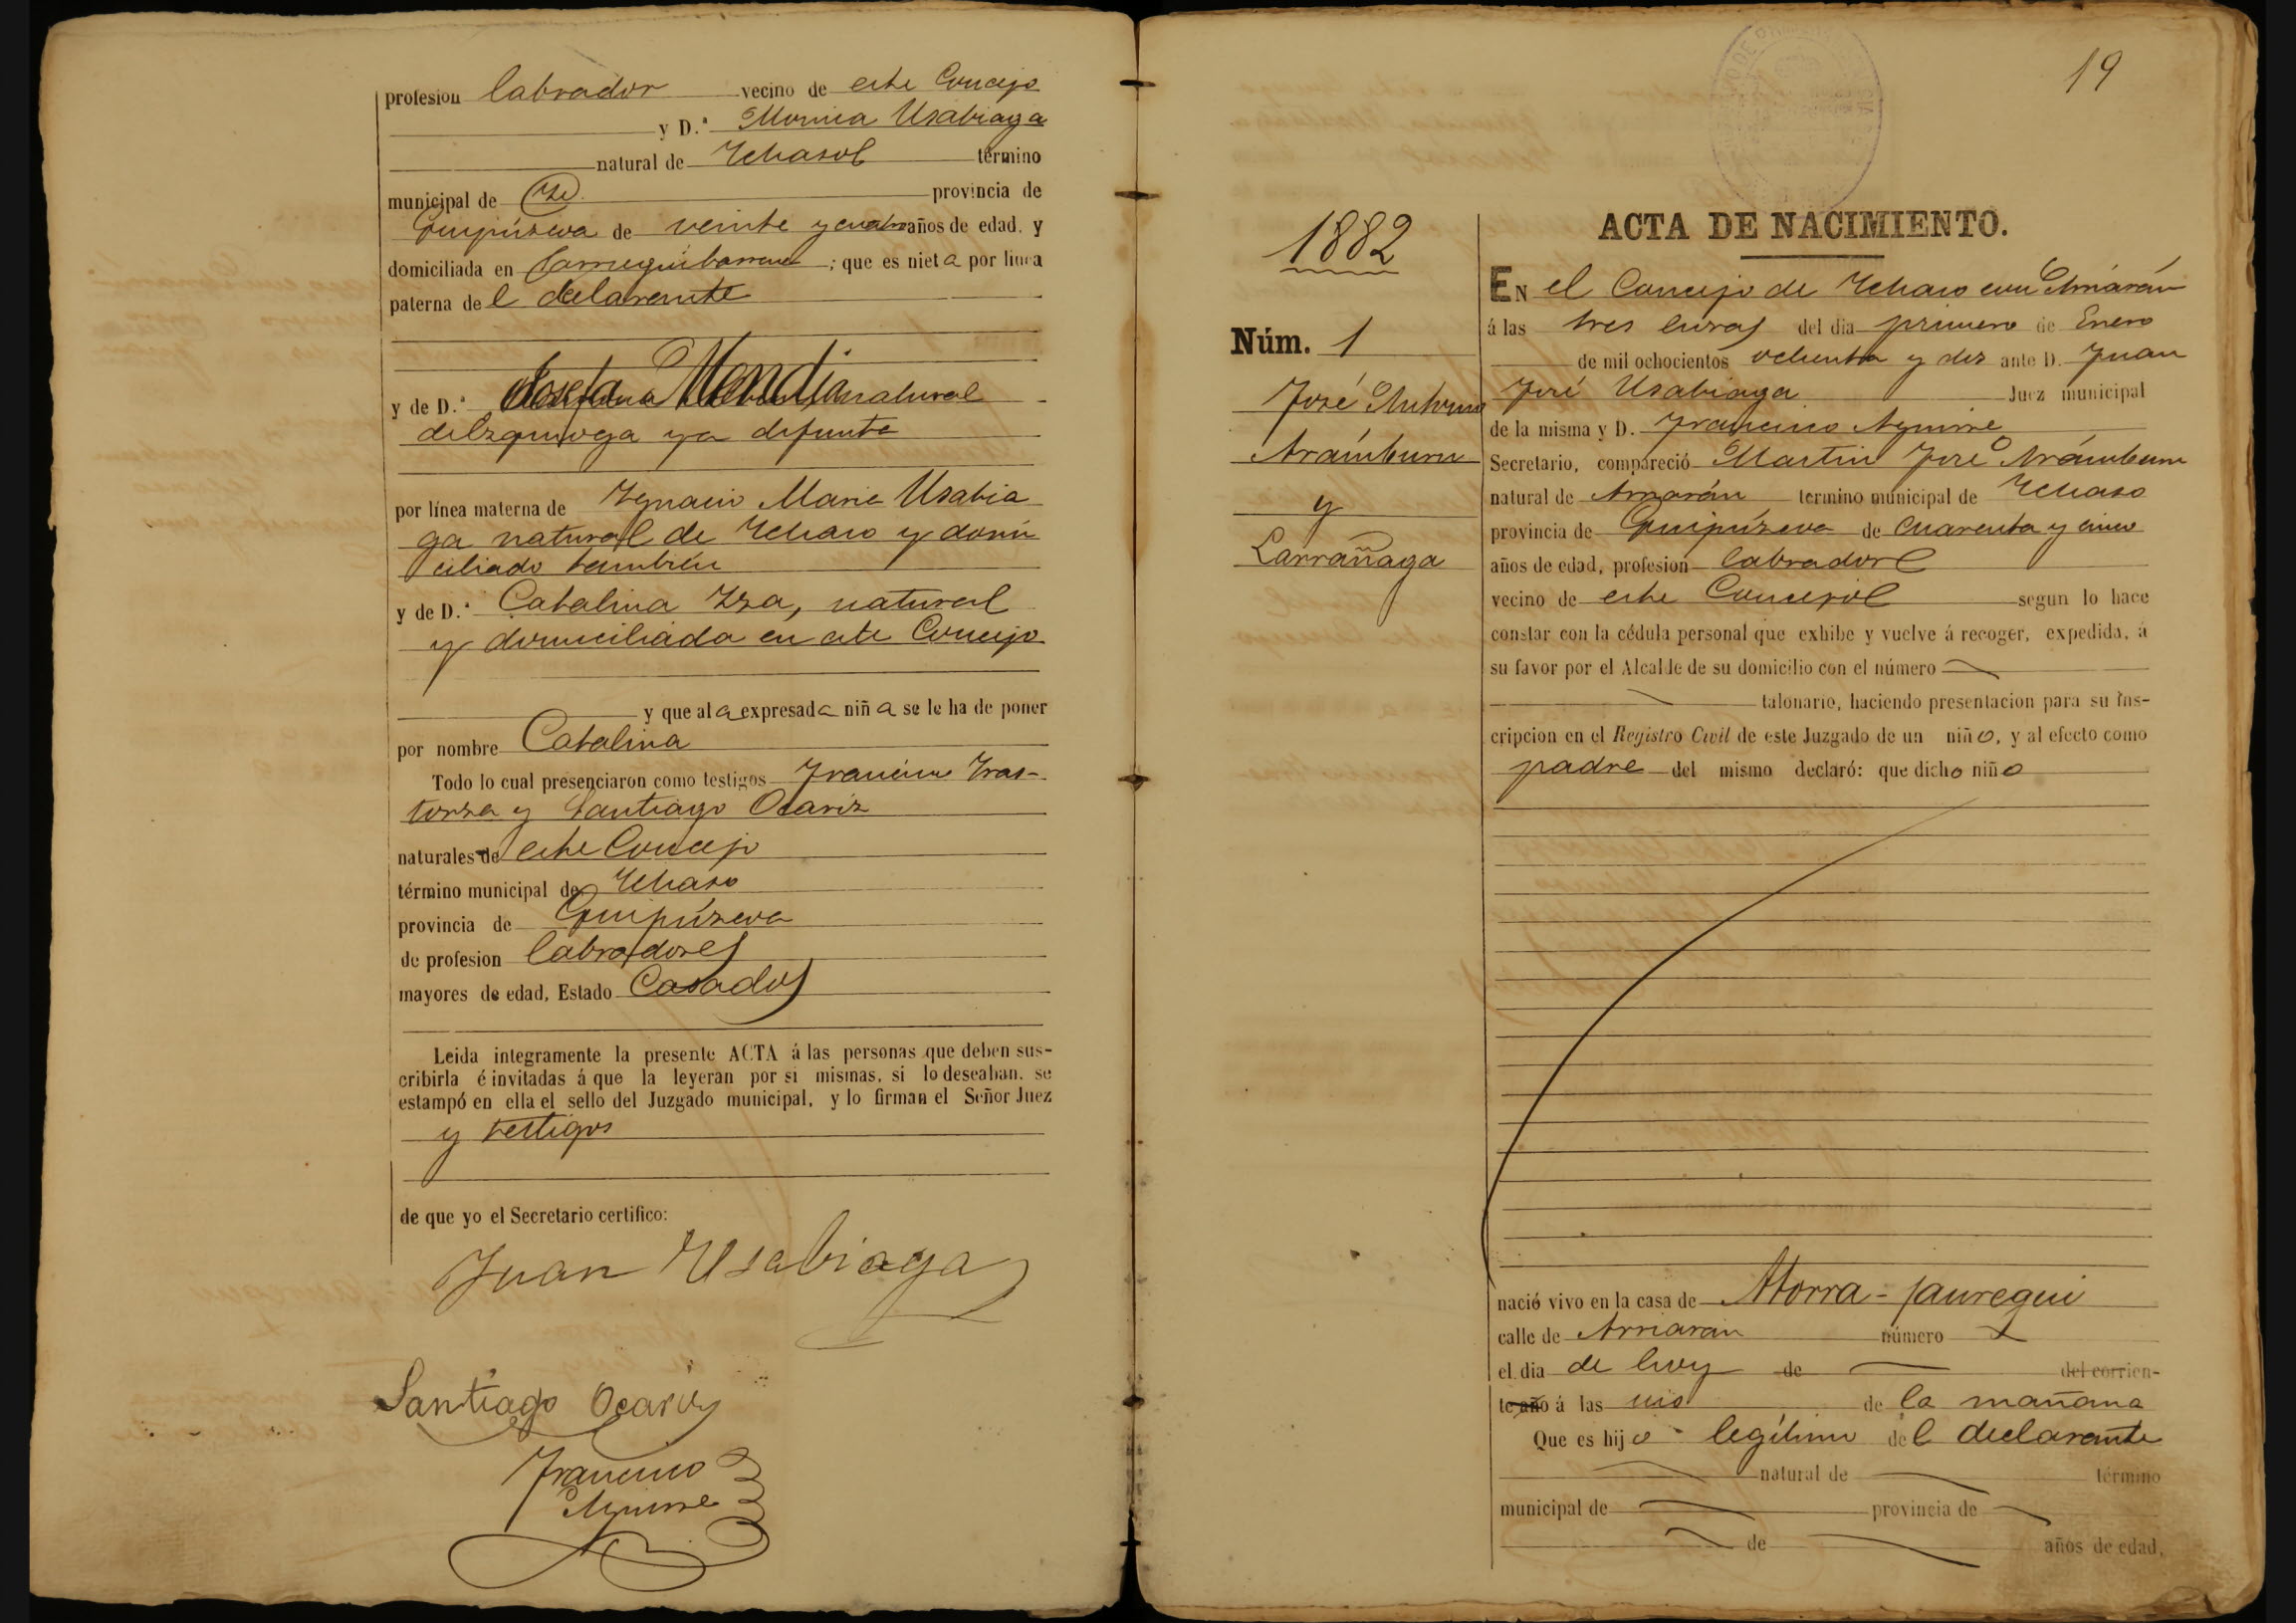 profesion labrador vecino de este Concejo
y D.ª Monica Usabiaga
natural de Ichaso término
municipal de provincia de
Guipúzcoa de veinte y cuatro años de edad, y
domiciliada en ; que es nieta por línea
paterna del declarante
y de D.ª Josefa Mendia natural
de Ezquioga ya difunta
por línea materna de Ygnacio Maria Usabia
ga natural de Ichaso y domi
ciliado también
y de D.ª Catalina Yza, natural
y domiciliada en este Concejo
y que al a expresada niña se le ha de poner
por nombre Catalina
Todo lo cual presenciaron como testigos Francisco Iras-
torza y Santiago Ocariz
naturales de este Concejo
término municipal de Ichaso
provincia de Guipúzcoa
de profesion labradores
mayores de edad, Estado Casados
Leida integramente la presente ACTA á las personas que deben sus-
cribirla é invitadas á que la leyeran por si mismas, si lo deseaban, se
estampó en ella el sello del Juzgado municipal, y lo firman el Señor Juez
y testigos
de que yo el Secretario certifico:
Juan Usabiaga
Santiago Ocariz
Francisco
Aguirre
19
1882
Núm. 1
José Antonio
Arámburu
y
Larrañaga
ACTA DE NACIMIENTO.
EN el Concejo de Ichaso con Arriarán
á las tres horas del dia primero de Enero
de mil ochocientos ochenta y dos ante D. Juan
José Usabiaga Juez municipal
de la misma y D. Francisco Aguirre
Secretario, compareció Martin José Arámburu
natural de Arriarán termino municipal de Ichaso
provincia de Guipúzcoa de cuarenta y cinco
años de edad, profesion labrador
vecino de este Concejo segun lo hace
constar con la cédula personal que exhibe y vuelve á recoger, expedida, á
su favor por el Alcalde de su domicilio con el número
talonario, haciendo presentacion para su ins-
cripcion en el Registro Civil de este Juzgado de un niño, y al efecto como
padre del mismo declaró: que dicho niño
nació vivo en la casa de Atorra-jauregui
calle de Arriaran número
el dia de hoy de del corrien-
te año á las seis de la mañana
Que es hijo legítimo del declarante
natural de término
municipal de provincia de
de años de edad,